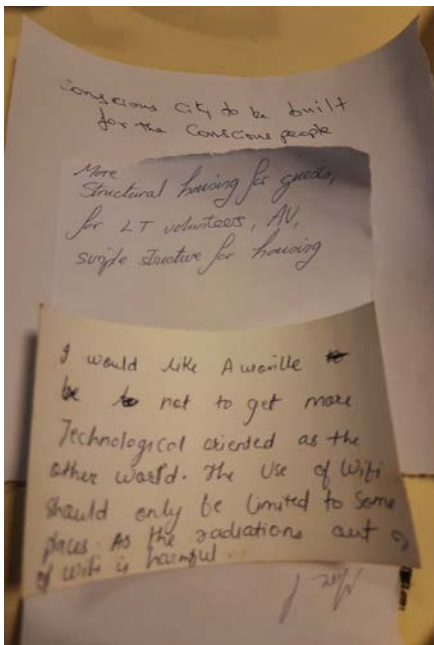 Conscious City to be built
for the Conscious people
More
Structural housing for guests,
for LT volunteers, AV,
simple structure for housing
I would like Auroville to
be to not to get more
Technological oriented as the
other world. The Use of Wifi
should only be limited to Some
places. As the radiations out
of wifi is harmful